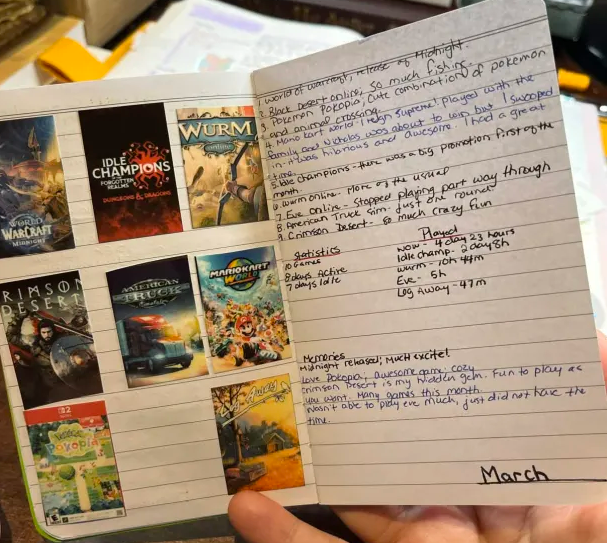 WORLD
WARCRAFT
MIDNIGHT
IDLE
CHAMPIONS
OF THE
FORGOTTEN
REALMS
DUNGEONS & DRAGONS
WURM
online
RIMSON
DESERT
AMERICAN
TRUCK
Simulator
MARIOKART
WORLD
2
Pokopia
Away
1 World of warcraft, release of Midnight.
2. Black Desert online, so much fishing.
3 Pokemon Pokopia, cute combination of pokemon
and animal crossing
4. Mario kart world I reign supreme! Played with the
family and Nicholas was about to win but I swooped
in it was hilarious and awesome. I had a great
time.
5. Idle champions - there was a big promotion first of the
month.
6. Wurm online - More of the usual
7. Eve Online - Stopped playing part way through
8 American Truck Sim. Just one round
9. Crimson Desert - so much crazy fun
Statistics
10 Games
8 days Active
7 days Idle
Played
WoW - 4 day 23 hours
Idle champ - 2 day 8h
Wurm - 10h 44m
Eve - 5h
Log Away - 47m
Memories
Midnight released; Much excite!
Love Pokopia, awesome game. cozy
Crimson Desert is my hidden gem. Fun to play as
you want. Many games this month.
Wasn't able to play eve much, just did not have the
time.
March